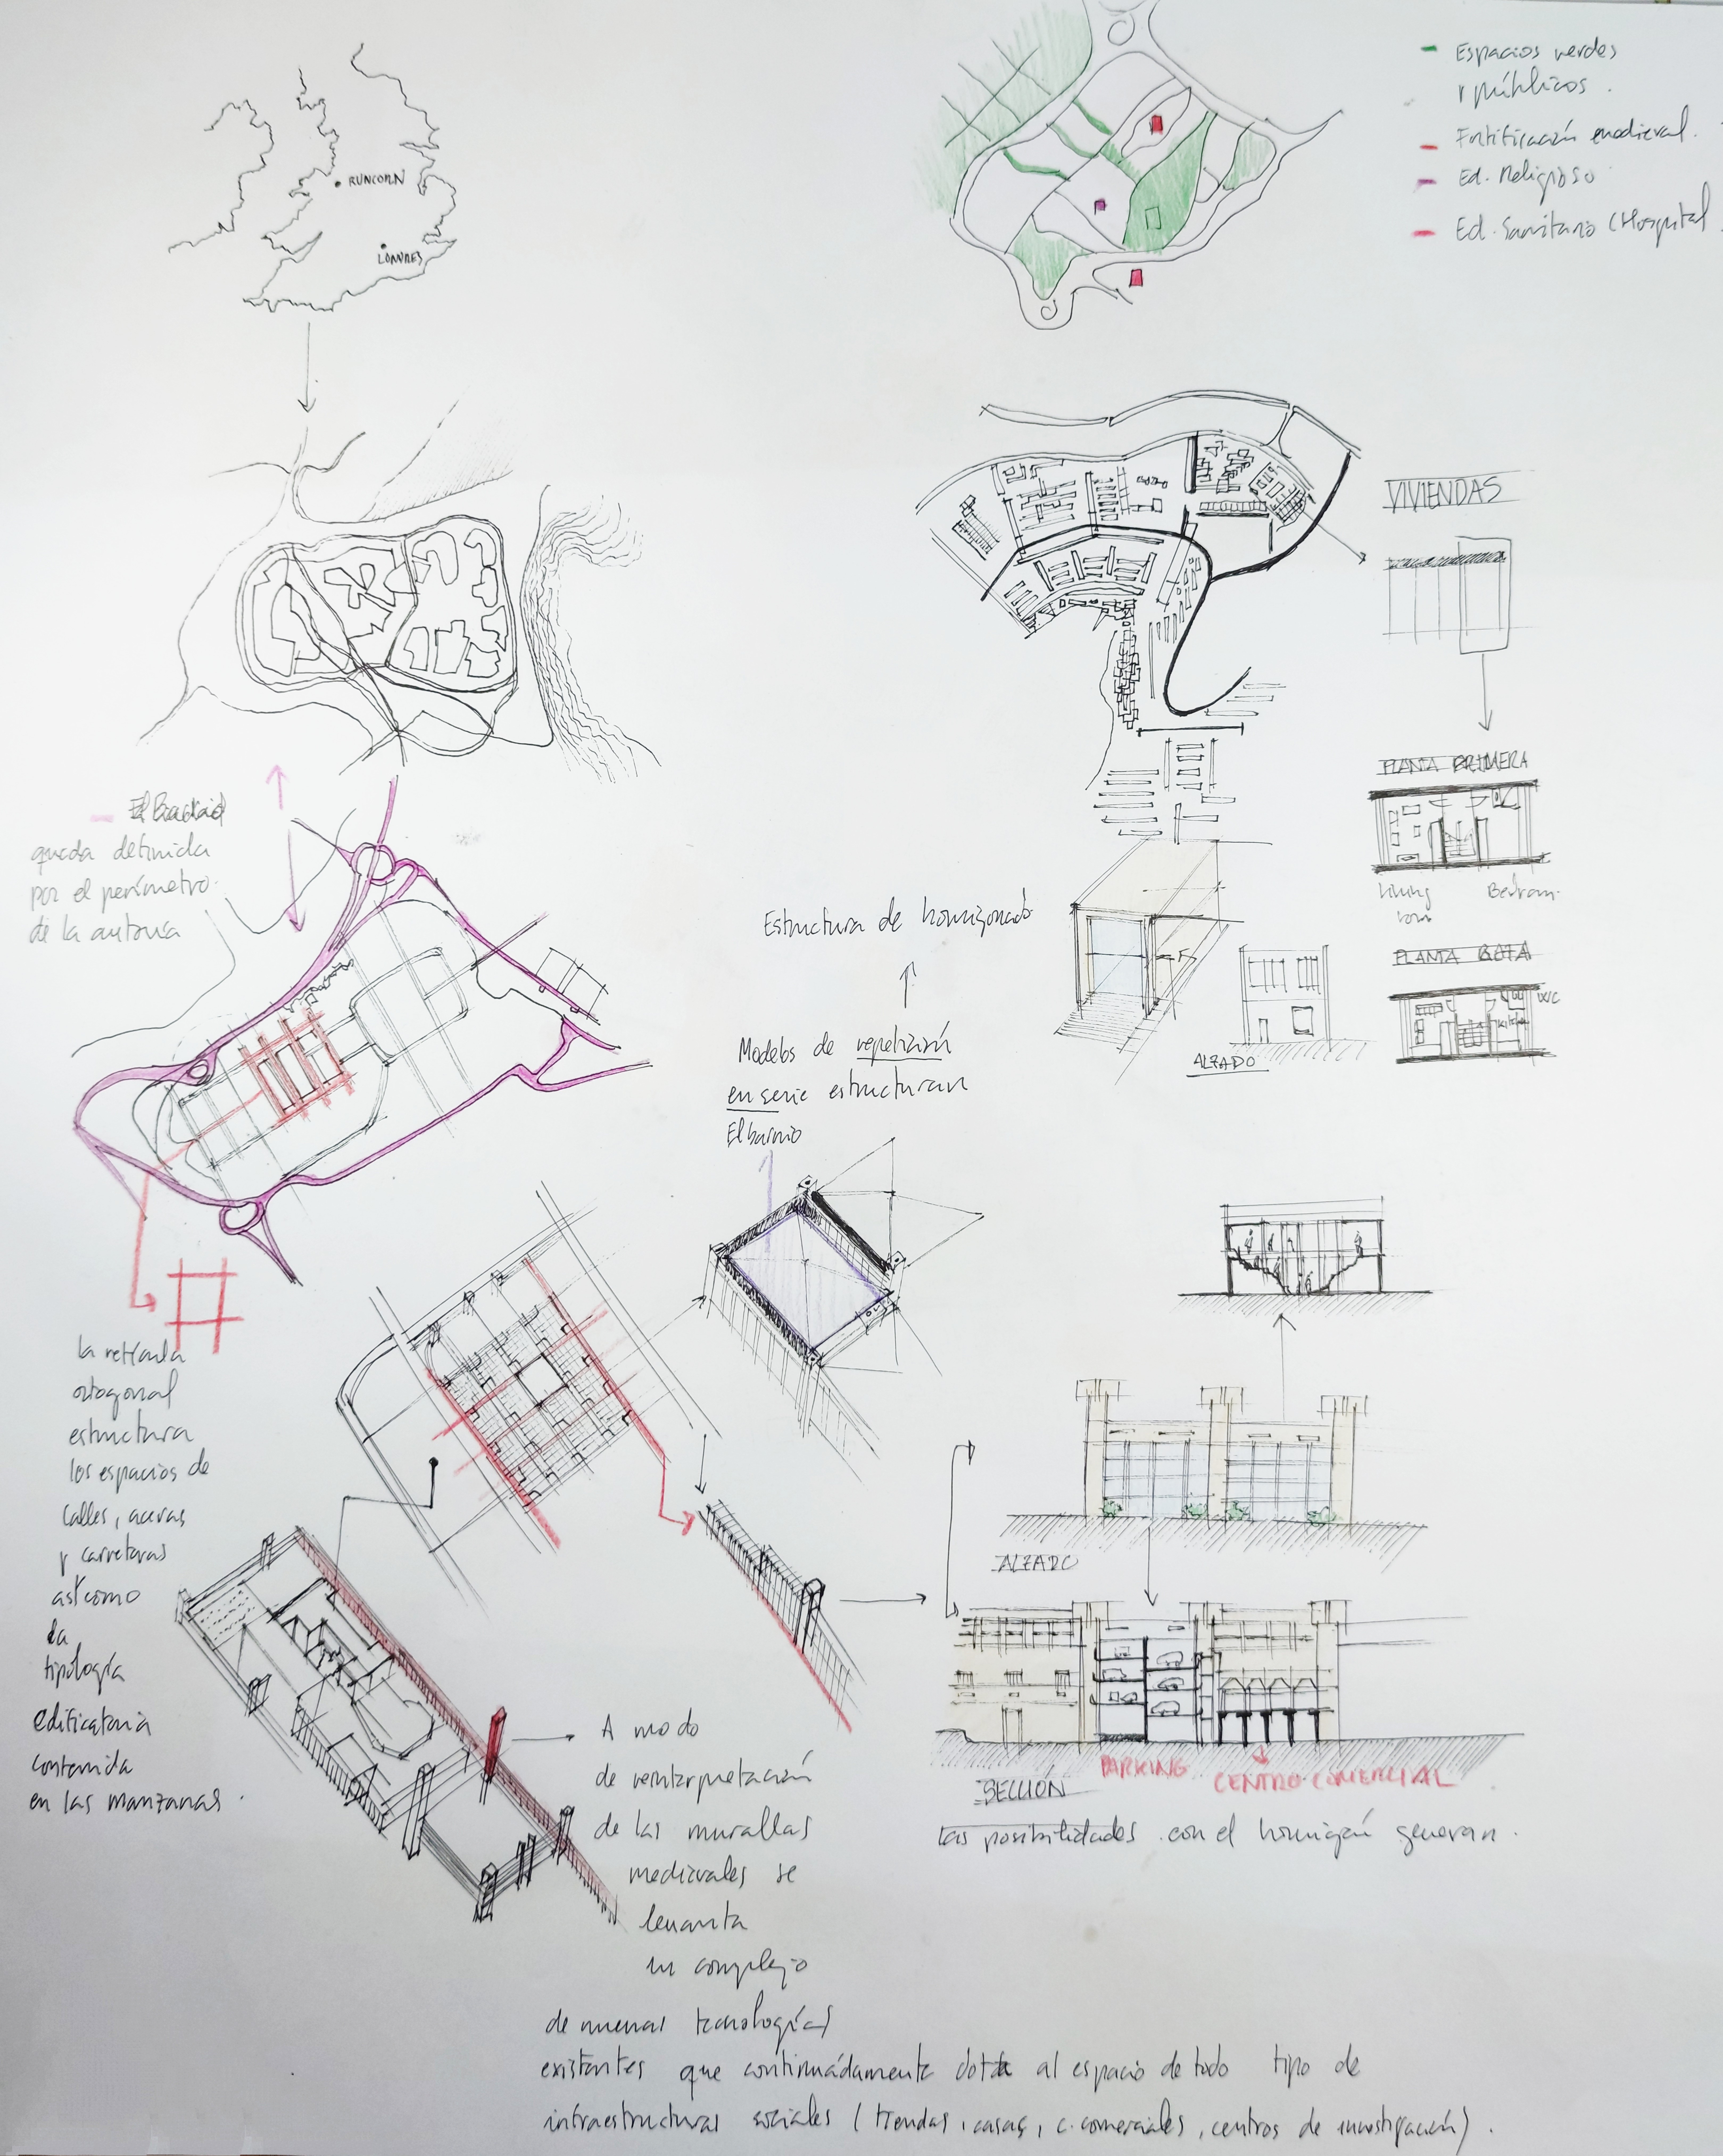 RUNCORN
LONDRES
Espacios verdes
y públicos.
Fortificación medieval.
Ed. Religioso
Ed. Sanitario (Hospital
VIVIENDAS
queda definida
por el perímetro
de la autovía
PLANTA PRIMERA
Living
room
Bedroom
PLANTA BAJA
W/C
kitchen
ALZADO
Estructura de hormigonado
Modelos de repetición
en serie estructuran
El barrio
la retícula
ortogonal
estructura
los espacios de
calles, aceras
y carreteras
así como
la
tipología
edificatoria
contenida
en las manzanas.
ALZADO
PARKING
CENTRO COMERCIAL
SECCIÓN
Las posibilidades con el hormigón generan.
A modo
de reinterpretación
de las murallas
medievales se
levanta
un complejo
de nuevas tecnologías
existentes que continuádamente dota al espacio de todo tipo de
infraestructuras sociales (tiendas, casas, c. comerciales, centros de investigación).